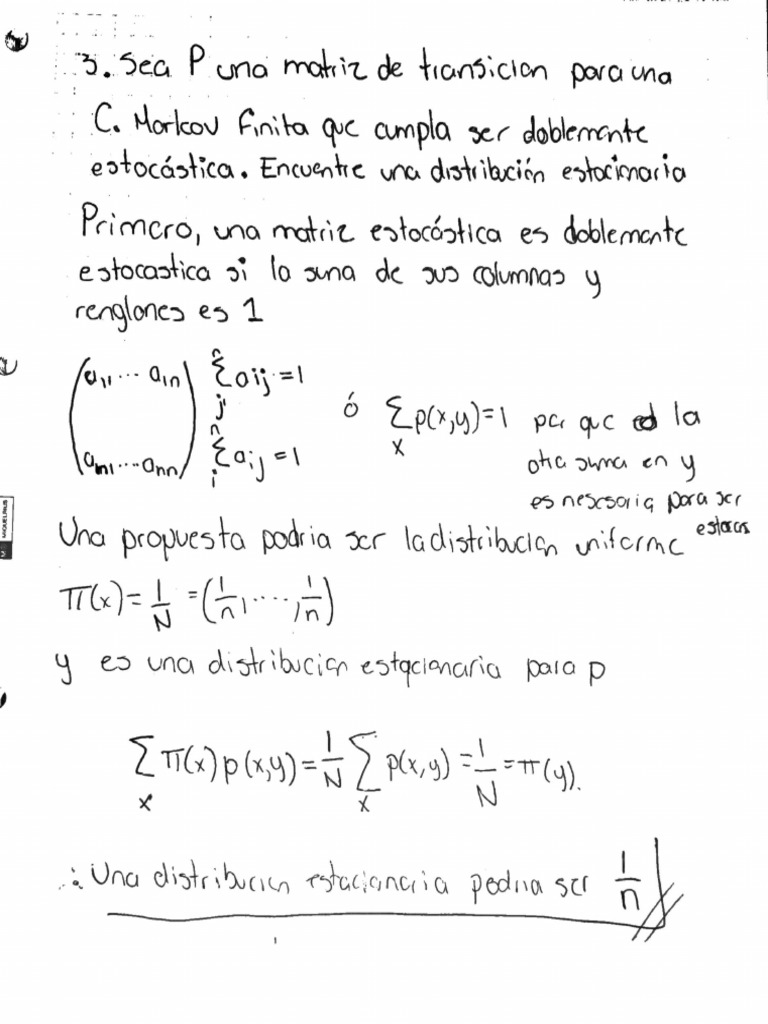 3. Sea P una matriz de transicion para una
C. Markov finita que cumpla ser doblemente
estocástica. Encuentre una distribución estacionaria
Primero, una matriz estocástica es doblemente
estocastica si la suma de sus columnas y
renglones es 1
(a11 ... a1n) n∑j aij = 1
(an1 ... ann) n∑i aij = 1
ó ∑x p(x,y)=1 por que la
otra suma en y
es nescesoria para ser
estocas
Una propuesta podria ser la distribucion uniforme
π(x) = 1/N = (1/n, ...., 1/n)
y es una distribucion estacionaria para p
∑x π(x) p(x,y) = 1/N ∑x p(x,y) = 1/N = π(y).
∴ Una distribucion estacionaria podria ser 1/n
MIQUELRIUS